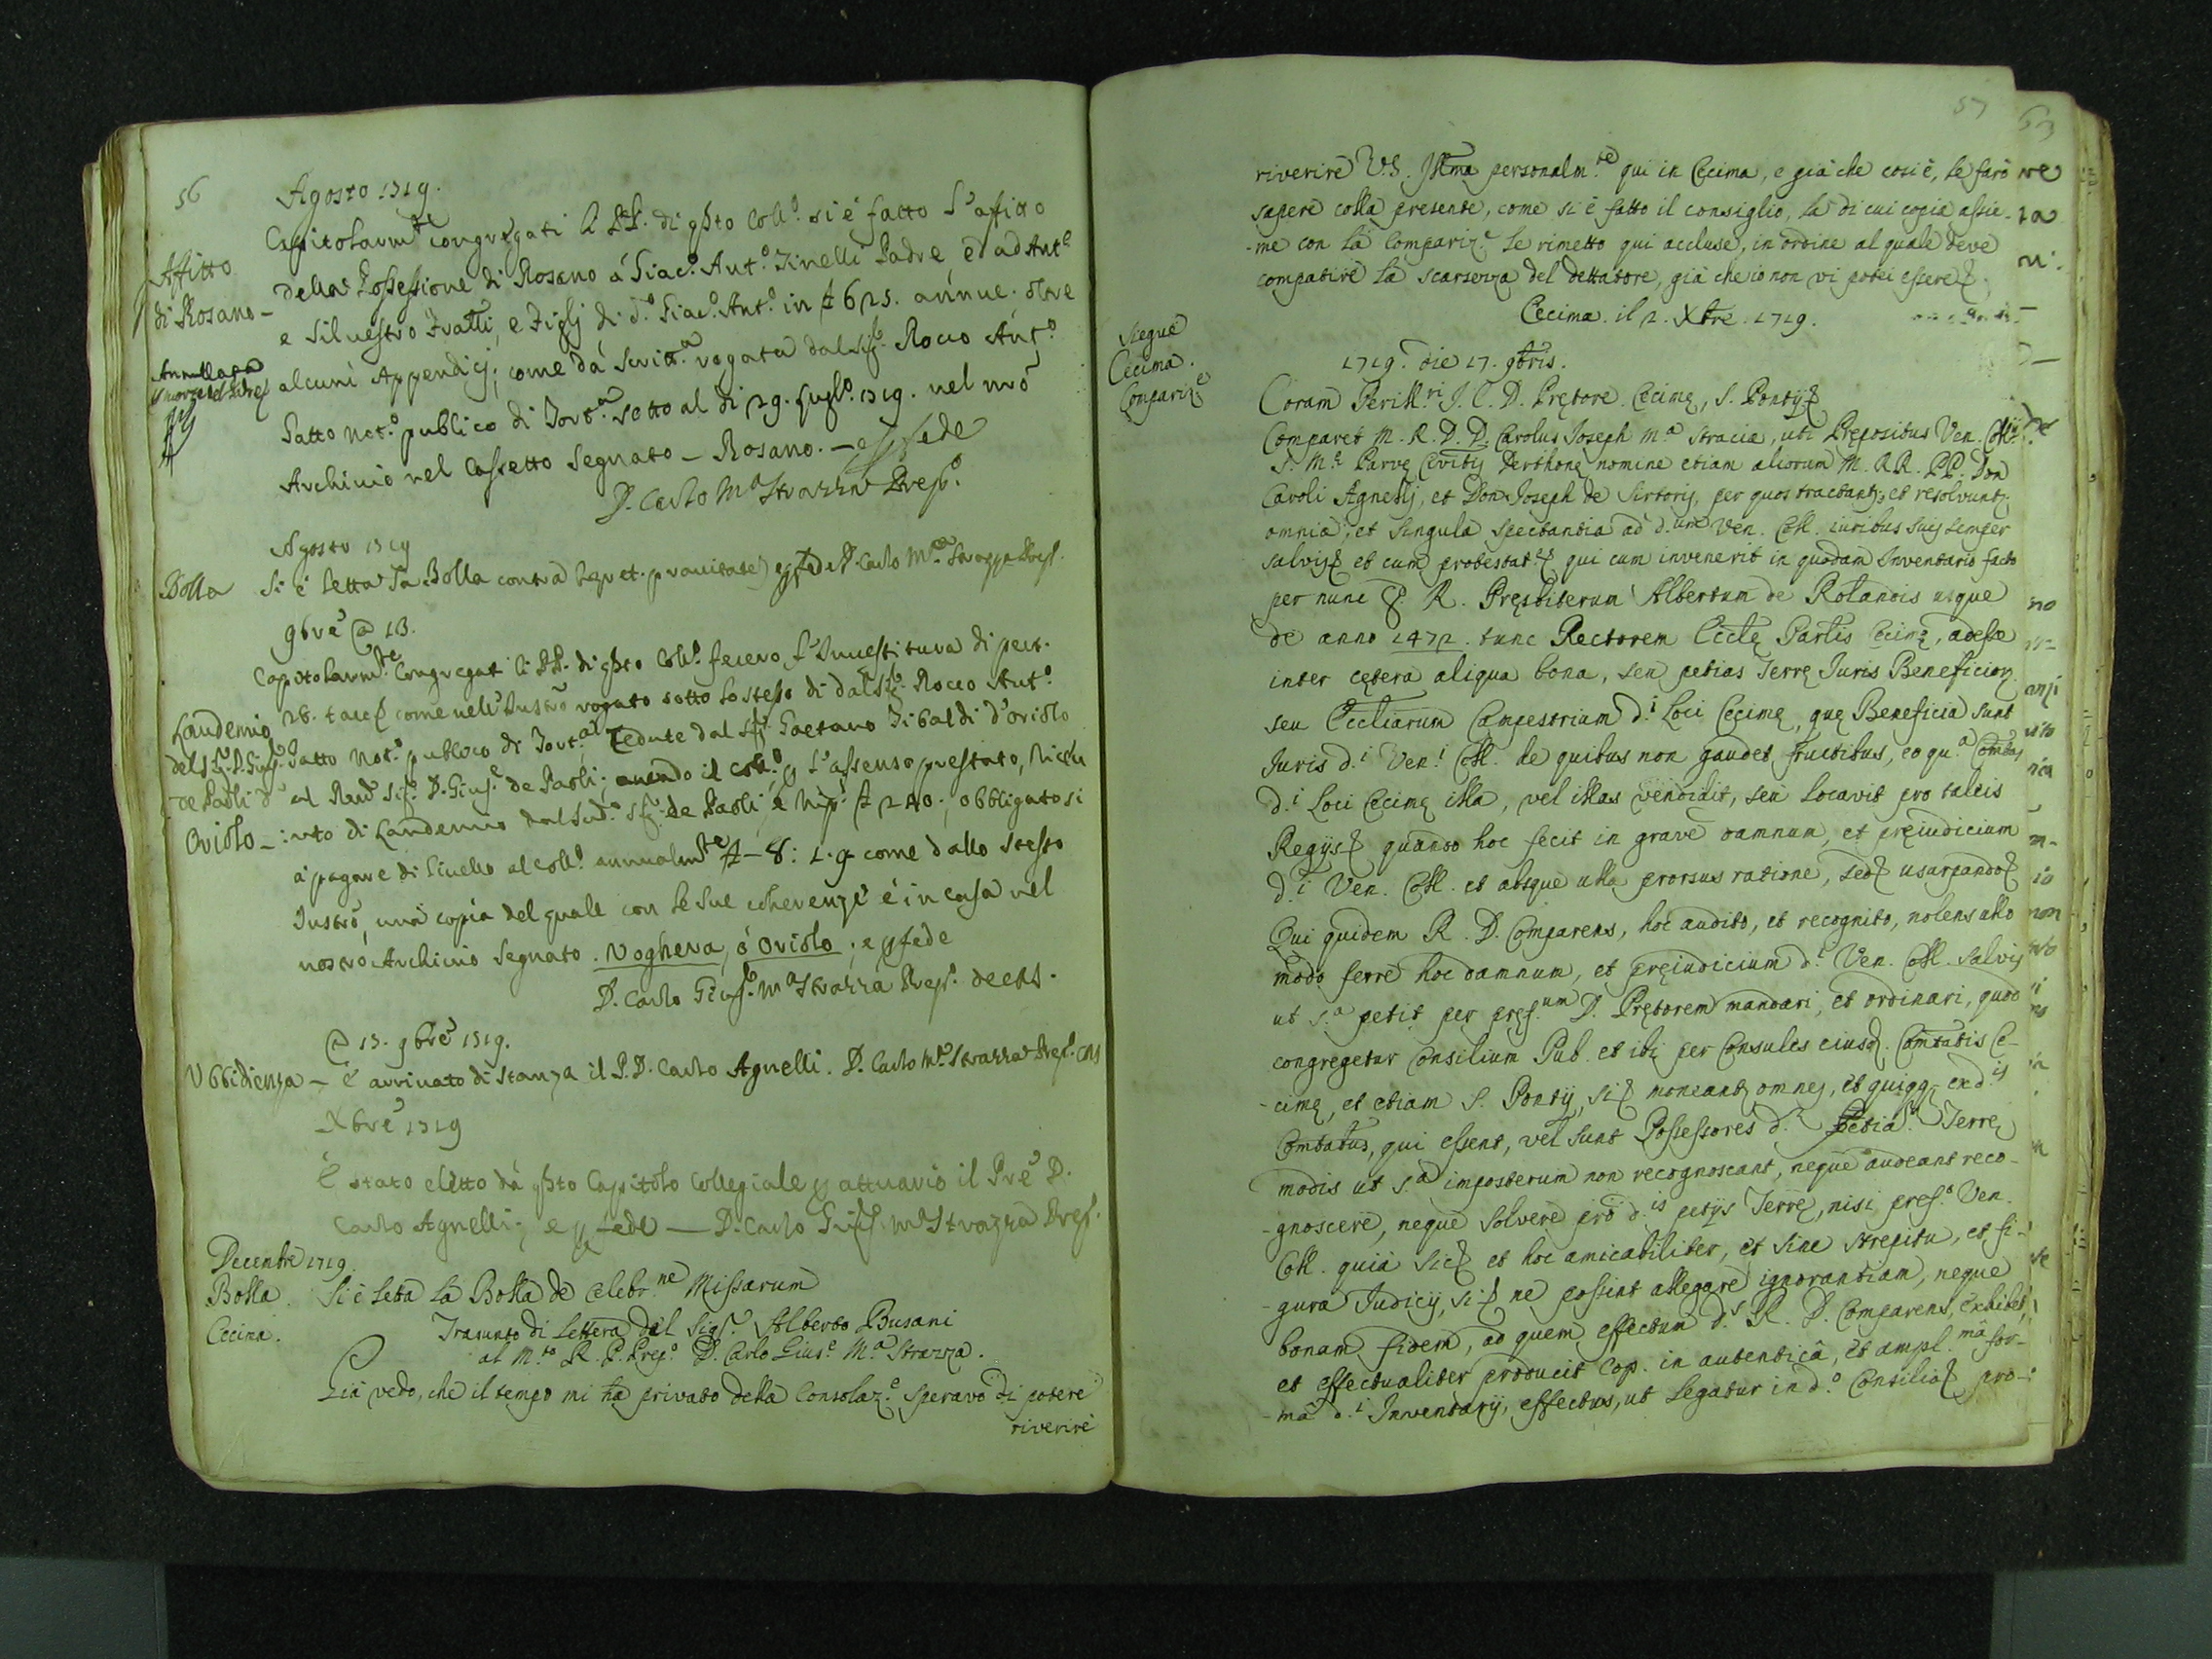 56
Agosto 1719.
Affitto di Rosano –
Capitolarm.te congregati li PP. di qsto Coll.o si è fatto l'affitto
della Possessione di Rosano á Giac.o Ant.o Zinelli Padre, ed ad Ant.o
e Silvestro Fratti, e Figlj di d.o Giac.o Ant.o in £ 625. annue. oltre
alcuni Appendicj; come dá Scritt.a rogata dal Sig.r Rocco Ant.o
Gatto Not.o publico di Tort.a sotto al di 29. Lugl.o 1719. nel nro
Archivio nel Cassetto Segnato – Rosano. – e p fede
D. Carlo M.a Strazza Prep.o
Agosto 1719
Bolla
Si è letta la Bolla contra heret. pravitate e p fede D. Carlo M.a Strazza Prep.
9bre @ 13.
Capitolarm.te Congregati li PP. di qsto Coll.o fecero l'Investitura di pert.
Laudemio
28. tav. come nell'Instro rogato sotto lo stesso di dal Sig.r Rocco Ant.o
del Sig.r D. Gius.e
Gatto Not.o publico di Tort.a Cedute dal Sig.r Gaetano Tibaldi d'Oriolo
de Paoli d'
al Rand Sig.r D. Gius.e de Paoli; avendo il Coll.o p l'assenso prestato, ricev
Oriolo –
:uto di Laudemio dal Sud.o Sig.r de Paoli £ 240; obbligatosi
á pagare di livello al Coll.o annualm.te £ – 8: 1. 9 come dallo stesso
Instro, una copia del quale con le sue coherenze è in casa nel
nostro Archivio Segnato. Voghera, ó Oriolo; e p fede
D. Carlo Gius.e M.a Strazza Prep.o
@ 13. 9bre 1719.
Ubbidienza – è arrivato di stanza il P. D. Carlo Agnelli. D. Carlo M.a Strazza Prep.
Xbre 1719
È stato eletto dà qsto Capitolo Collegiale p attuario il Pre D.
Carlo Agnelli; e p fede — D. Carlo Gius. M.a Strazza Prep.
Decembre 1719.
Bolla. Si è letta la Bolla de Celebr.ne Missarum
Cecima.
Trasunto di Lettera del Sig.r Alberto Busani
al M.to R. P. Prep.o D. Carlo Gius.e M.a Strazza.
Già vedo, che il tempo mi ha privato della Consolaz.e speravo di potere
riverire
57
63
riverire V.S. Illma personalm.te qui in Cecima, e già che cosi è, le farò
sapere colla presente, come si è fatto il consiglio, la di cui copia assie-
-me con la Compariz.e le rimetto qui accluse, in ordine al quale deve
compatire la scarsezza del dettatore, già che io non vi potei essere
Cecima. il 2. Xbre. 1719.
Siegue
Cecima.
Compariz.e
1719. die 17. 9bris.
Coram Perill.ri J. C. D. Prętore Cecimę, S. Pontij
Comparet M. R. D. D. Carolus Joseph M.a Stracia, uti Prępositus Ven. Collij
S. M.ę Parvę Civitis Derthonę nomine etiam aliorum M. RR. PP. Don
Caroli Agnellij, et Don Joseph de Sirtorij, per quos tractant, et resolvunt
omnia, et singula spectantia ad d.um Ven. Coll. iuribus suis semper
salvis et cum protestat. qui cum invenerit in quodam Inventario facto
per nunc q. R. Pręsbiterum Albertum de Rolandis usque
de anno 1472. tunc Rectorem Eccle Partis Cecimę, adesse
inter cętera aliqua bona, seu petias Terrę Iuris Beneficior.
seu Eccliarum Campestrium d.i Loci Cecimę, quę Beneficia sunt
Juris d.i Ven.i Coll. de quibus non gaudet fructibus, eo qu.a Comtas
d.i Loci Cecimę illa, vel illas vendidit, seu locavit pro taleis
Regijs quando hoc fecit in grave damnum, et pręiudicium
d.i Ven. Coll. et absque ulla prorsus ratione, sed usurpando
Qui quidem R. D. Comparens, hoc audito, et recognito, nolens ullo
modo ferre hoc damnum, et pręiudicium d.i Ven. Coll. salvis
ut s.a petit per pręf.um D. Prętorem mandari, et ordinari, quod
congregetur Consilium Pub. et ibi per Consules eiusd. Comtatis Ce-
-cimę, et etiam S. Pontij, si moneant omnes, et quiqq ex d.is
Comtatus, qui essent, vel sunt Possessores d. Petia. Terrę
modis ut s.a imposterum non recognoscant, neque audeant reco-
-gnoscere, neque solvere pro d.is petijs Terrę, nisi pref.o Ven.
Coll. quia sic et hoc amicabiliter, et sine strepitu, et fi-
-gura Judicij, si ne possint allegare ignorantiam, neque
bonam fidem, ad quem effectum d.s R. D. Comparens, exhibet,
et effectualiter producit Cop. in autentica, et ampl.ma for-
-ma d.i Inventarij, effectus, ut legatur in d.o Consilio pro-